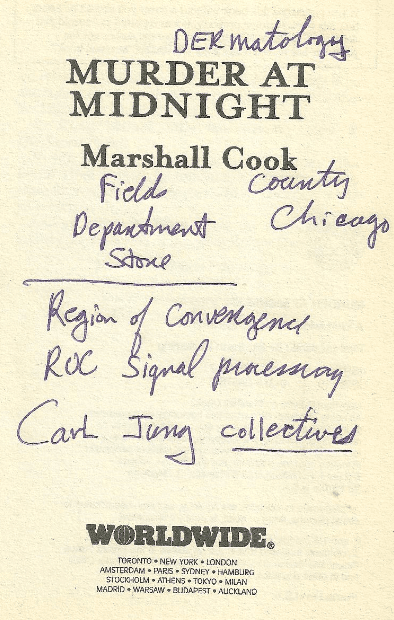 DERmatology
MURDER AT
MIDNIGHT
Marshall Cook
Fields County
Department Chicago
Store
Region of Convergence
ROC Signal processing
Carl Jung collectives
WORLDWIDE®
TORONTO • NEW YORK • LONDON
AMSTERDAM • PARIS • SYDNEY • HAMBURG
STOCKHOLM • ATHENS • TOKYO • MILAN
MADRID • WARSAW • BUDAPEST • AUCKLAND